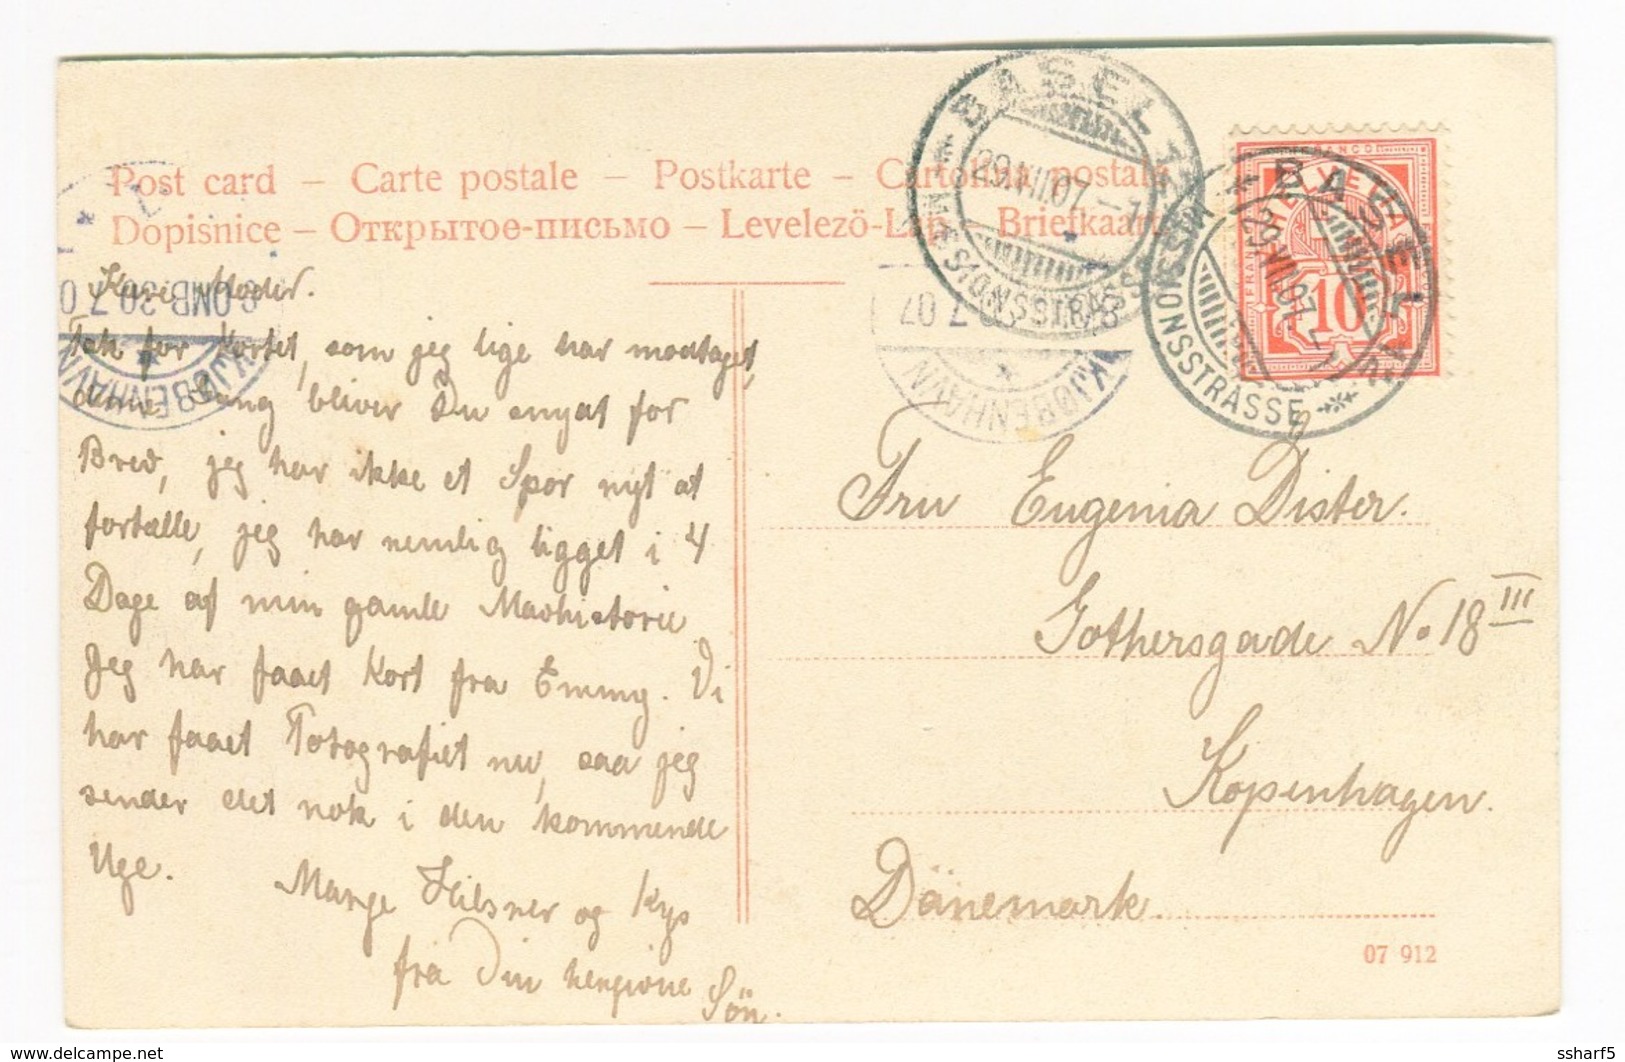 Post card – Carte postale – Postkarte – Cartolina postale
Dopisnice – Открытое-письмо – Levelezö-Lap – Briefkaart
BASEL 12
29.VII.07.–1
MISSIONSSTRASSE
BASEL 12
29.VII.07.–1
MISSIONSSTRASSE
HELVETIA
FRANCO
10
KJØBENHAVN
8.OMB 30.7.07
KJØBENHAVN
7 07
Kære Moder.
Tak for Kortet, som jeg lige har modtaget,
denne Gang bliver Du snyat for
Brev, jeg har ikke et Spor nyt at
fortælle, jeg har nemlig ligget i 4
Dage af min gamle Mavhistorie
Jeg har faaet Kort fra Emmy. Vi
har faaet Fotografiet nu, saa jeg
sender det nok i den kommende
Uge.
Mange Hilsner og Kys
fra Din hengivne
Sön.
Fru Eugenia Dister.
Gothersgade No 18 III
Kopenhagen.
Dänemark.
07 912
ssharf5